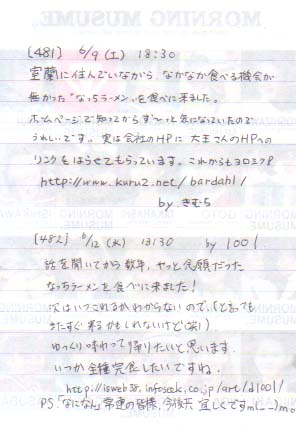 MORNING MUSUME.
[481] 6/9 (土) 18:30
室蘭に住んでいながら、なかなか食べる機会が
無かった"なっちラーメン"を食べに来ました。
ホームページで知ってからず〜っと気になっていたので
うれしいです。実は会社のHPに大王さんのHPへの
リンクをはらせてもらっています。これからもヨロシク!
http://www.kuru2.net/bardahl/
by.きむち
[482] 6/12 (火) 13:30 by 1001
話を聞いてから数年、やっと念願だった
なっちラーメンを食べに来ました!
次はいつこれるかわからないので、(と言っても
またすぐ来るかもしれないけど(笑))
ゆっくり味わって帰りたいと思います。
いつか全種完食したいですね。
http://isweb38.infoseek.co.jp/art/d1001/
PS.「なになん」常連の皆様、今後共、宜しくですm(_ _)m。